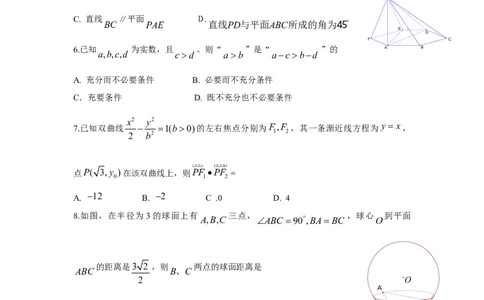 C. 直线 BC ∥平面 PAE D. 直线PD与平面ABC所成的角为45°
6.已知 a,b,c,d 为实数，且 c > d 。则“ a > b ”是“ a − c > b − d ”的
A. 充分而不必要条件 B. 必要而不充分条件
C．充要条件 D. 既不充分也不必要条件
7.已知双曲线 x²/2 − y²/b² = 1(b > 0) 的左右焦点分别为 F₁,F₂ ，其一条渐近线方程为 y = x ，
点 P( 3,y₀) 在该双曲线上，则 PF₁ • PF₂ =
A. −12 B. −2 C .0 D. 4
8.如图，在半径为 3 的球面上有 A,B,C 三点， ∠ABC = 90°,BA = BC ，球心 O 到平面
ABC 的距离是 3√2/2 ，则 B、C 两点的球面距离是
F
A
B
C
A
O